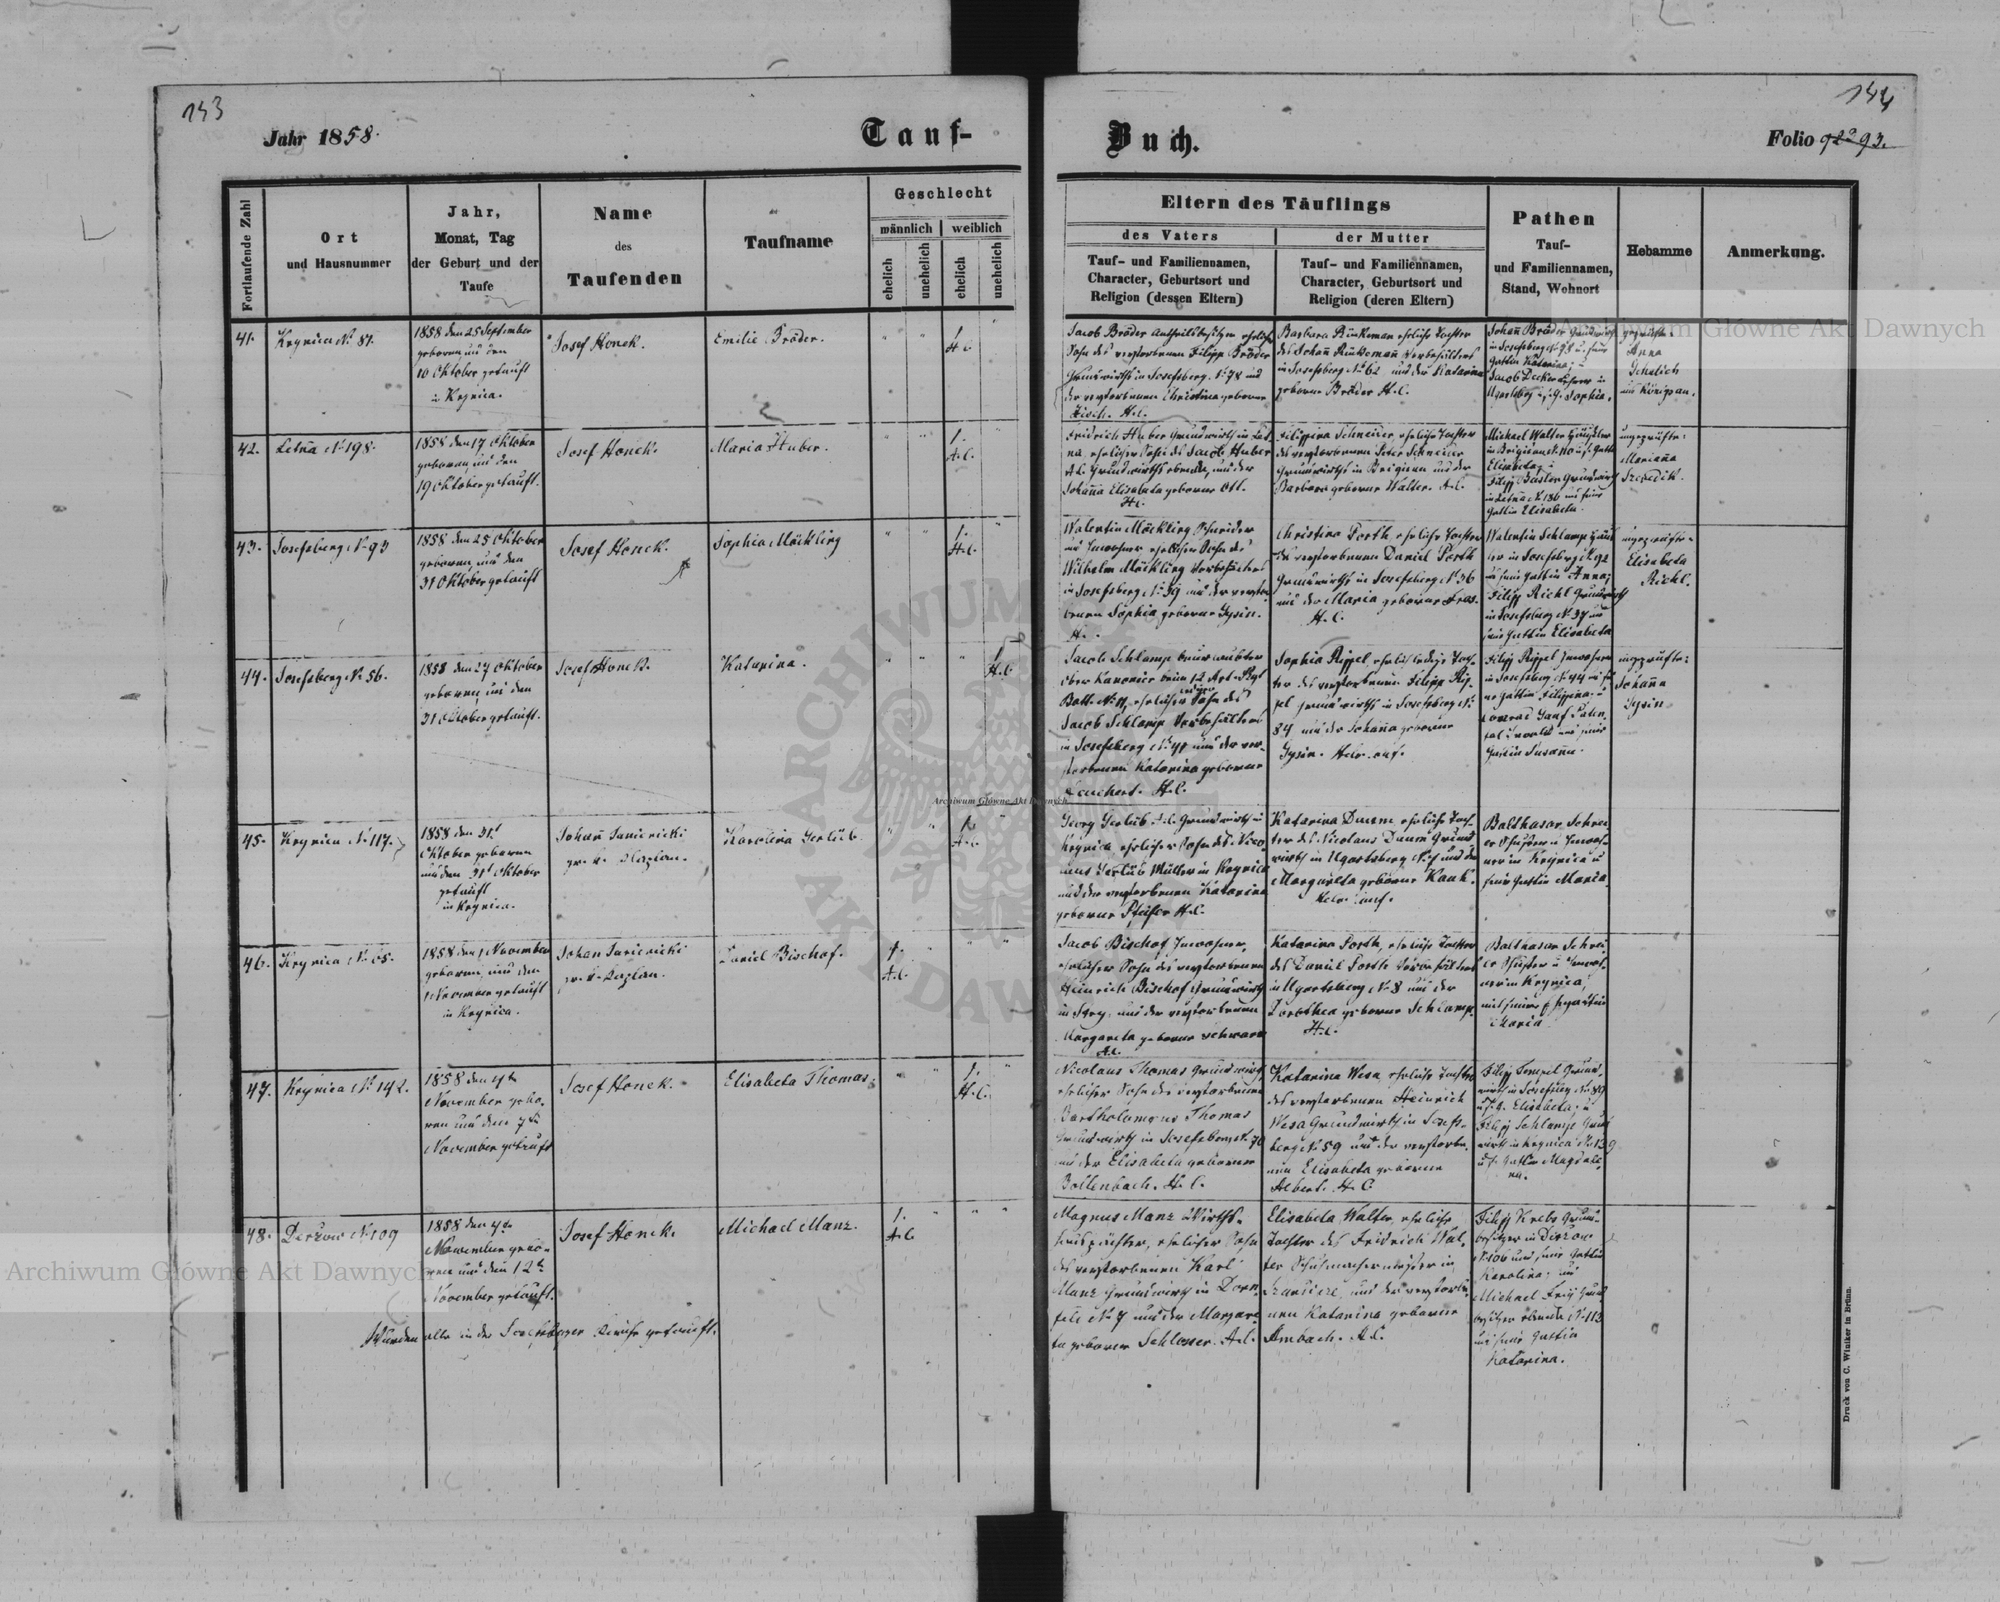 143
144
Jahr 1858.
Tauf-
Buch.
Folio 92 93.
Fortlaufende Zahl
Ort
und Hausnummer
Jahr,
Monat, Tag
der Geburt und der
Taufe
Name
des
Taufenden
Taufname
Geschlecht
männlich
weiblich
ehelich
unehelich
ehelich
unehelich
Eltern des Täuflings
des Vaters
Tauf- und Familiennamen,
Character, Geburtsort und
Religion (dessen Eltern)
der Mutter
Tauf- und Familiennamen,
Character, Geburtsort und
Religion (deren Eltern)
Pathen
Tauf-
und Familiennamen,
Stand, Wohnort
Hebamme
Anmerkung.
41.
Krynica No 87.
1858 den 25 September
geboren und den
10 Oktober getauft
in Krynica.
Josef Honek.
Emilie Bröder.
1
H.C.
Jacob Bröder
Sohn des verstorbenen Filipp Bröder
Grundwirths in Josefsberg No 78 und
der verstorbenen Christina geborne
H.C.
Barbara Rinkeman eheliche Tochter
des Johañ Rinkemañ
in Josefsberg No 62 und der Katarina
geborne Bröder H.C.
Johañ Bröder Grundwirth
in Josefsberg
Gattin Katarina; u
Jacob Decker
Ugartsberg u. s. G. Sophia.
geprüfte:
Anna
Schalich
aus Königsau.
42.
Letña No 198.
1858 den 17 Oktober
geboren, und den
19 Oktober getauft.
Josef Honek.
Maria Huber.
1.
A.C.
Fridrich Huber Grundwirth in Let-
na, ehelicher Sohn des Jacob Huber
A.C. Grundwirths und der
Johaña Elisabeta geborne Ott.
H.C.
Filippina Schneider, eheliche Tochter
des verstorbenen Peter Schneider
Grundwirths in Brigidau und der
Barbara geborne Walter. A.C.
Michael Walter
in Brigidau No 110 u. s. Gattin
Elisabeta; u
Filipp Grundwirth
in Letña No 186 und seine
Gattin Elisabeta.
ungeprüfte:
Mariaña
43.
Josefsberg No 93
1858 den 25 Oktober
geboren, und den
31 Oktober getauft
Josef Honek.
Sophia Möckling
1.
H.C.
Valentin Möckling Schneider
und Inwohner ehelicher Sohn des
Wilhelm Möckling
in Josefsberg No 39 und der verstor-
benen Sophia geborne Gysin.
Christina Porth, eheliche Tochter
des verstorbenen Daniel Porth
Grundwirths in Josefsberg No 36
und der Maria geborne
H.C.
Valentin Schlamp
in Josefsberg No 92
und seine Gattin Anna;
Filipp Richl Grundwirth
in Josefsberg No 37 und
seine Gattin Elisabeta
ungeprüfte:
Elisabeta
Richl.
44.
Josefsberg No 56.
1858 den 27 Oktober
geboren, und den
31 Oktober getauft.
Josef Honek.
Katarina.
1
H.C.
Jacob Schlamp beurlaubter
Ober Kanonier beim 12 Art. Rgt
Batt. No 11, ehelicher Sohn des
Jacob Schlamp
in Josefsberg No 41 und der ver-
storbenen Katarina geborne
H.C.
Sophia Rippel, Toch-
ter des verstorbenen Filipp Rip-
pel Grundwirths in Josefsberg No
84 und der Johaña geborne
Gysin. Helv. Conf.
Filipp Rippel Inwohner
in Josefsberg No 44 und sei-
ne Gattin Filippina: u
Conrad
und seine
Gattin Susaña.
ungeprüfte:
Johaña
Gysin
45.
Krynica No 117.
1858 den 31t
Oktober geboren
und den 31t Oktober
getauft
in Krynica.
Johañ
gr. k. Kaplan.
Karolina Gerlüb.
1.
A.C.
Georg Gerlüb A.C. Grundwirth in
Krynica ehelicher Sohn des Nico-
laus Gerlüb Müller in Krynica
und der verstorbenen Katarina
geborne H.C.
Katarina Daum, eheliche Toch-
ter des Nicolaus Daum Grund-
wirths in Ugartsberg No 7 und der
Margareta geborne Kauk.
Helv. Conf.
Balthasar Schrei-
er Schuster u Inwoh-
ner in Krynica u
seine Gattin Maria
46.
Krynica No 65.
1858 den 1 November
geboren, und den
1 November getauft
in Krynica.
Johan
gr. k. Kaplan.
Daniel Bischof.
1.
A.C.
Jacob Bischof Inwohner,
ehelicher Sohn des verstorbenen
Heinrich Bischof Grundwirth
in Stryj und der verstorbenen
Margareta geborne Schwarz
A.C.
Katarina Porth, eheliche Tochter
des Daniel Porth
in Ugartsberg No 8 und der
Dorothea geborne Schlamp.
H.C.
Balthasar Schrei-
er Schuster u Inwoh-
ner in Krynica,
mit seiner
Maria
47.
Krynica No 142.
1858 den 4te
November gebo-
ren und den 7te
November getauft
Josef Honek.
Elisabeta Thomas.
1.
H.C.
Nicolaus Thomas Grundwirth,
ehelicher Sohn des verstorbenen
Bartholomäus Thomas
Grundwirth in Josefsberg No 70
und der Elisabeta geborne
Bollenbach. H.C.
Katarina Wesa, eheliche Tochter
des verstorbenen Heinrich
Wesa Grundwirth in Josefs-
berg No 59 und der verstorbe-
nen Elisabeta geborne
Albert. H.C.
Filipp Tempel Grund-
wirth in Josefsberg No 89
u. s. G. Elisabeta; u
Filipp Schlamp Grund-
wirth in Krynica No 139
u. s. Gattin Magdale-
na.
48.
Derzow No 109
1858 den 4te
November gebo-
ren und den 12te
November getauft.
Josef Honek.
Michael Manz.
1.
A.C.
Magnus Manz Wirths-
hauspächter, ehelicher Sohn
des verstorbenen Karl
Manz Grundwirth in Dorn-
feld No 7 und der Margare-
ta geborne Schlosser. A.C.
Elisabeta Walter, eheliche
Tochter des Fridrich Wal-
ter Schuhmachermeister in
und der verstorbe-
nen Katarina geborne
Ambach. A.C.
Filipp Krebs Grund-
besitzer in Dirzow
No 106 und seine Gattin
Karolina; und
Michael Frey Grund-
besitzer No 113
und seine Gattin
Katarina.
Wurden alle in der Josefsberger Kirche getauft.
Druck von C. Winiker in Brünn.
Archiwum Główne Akt Dawnych
Archiwum Główne Akt Dawnych
Archiwum Główne Akt Dawnych